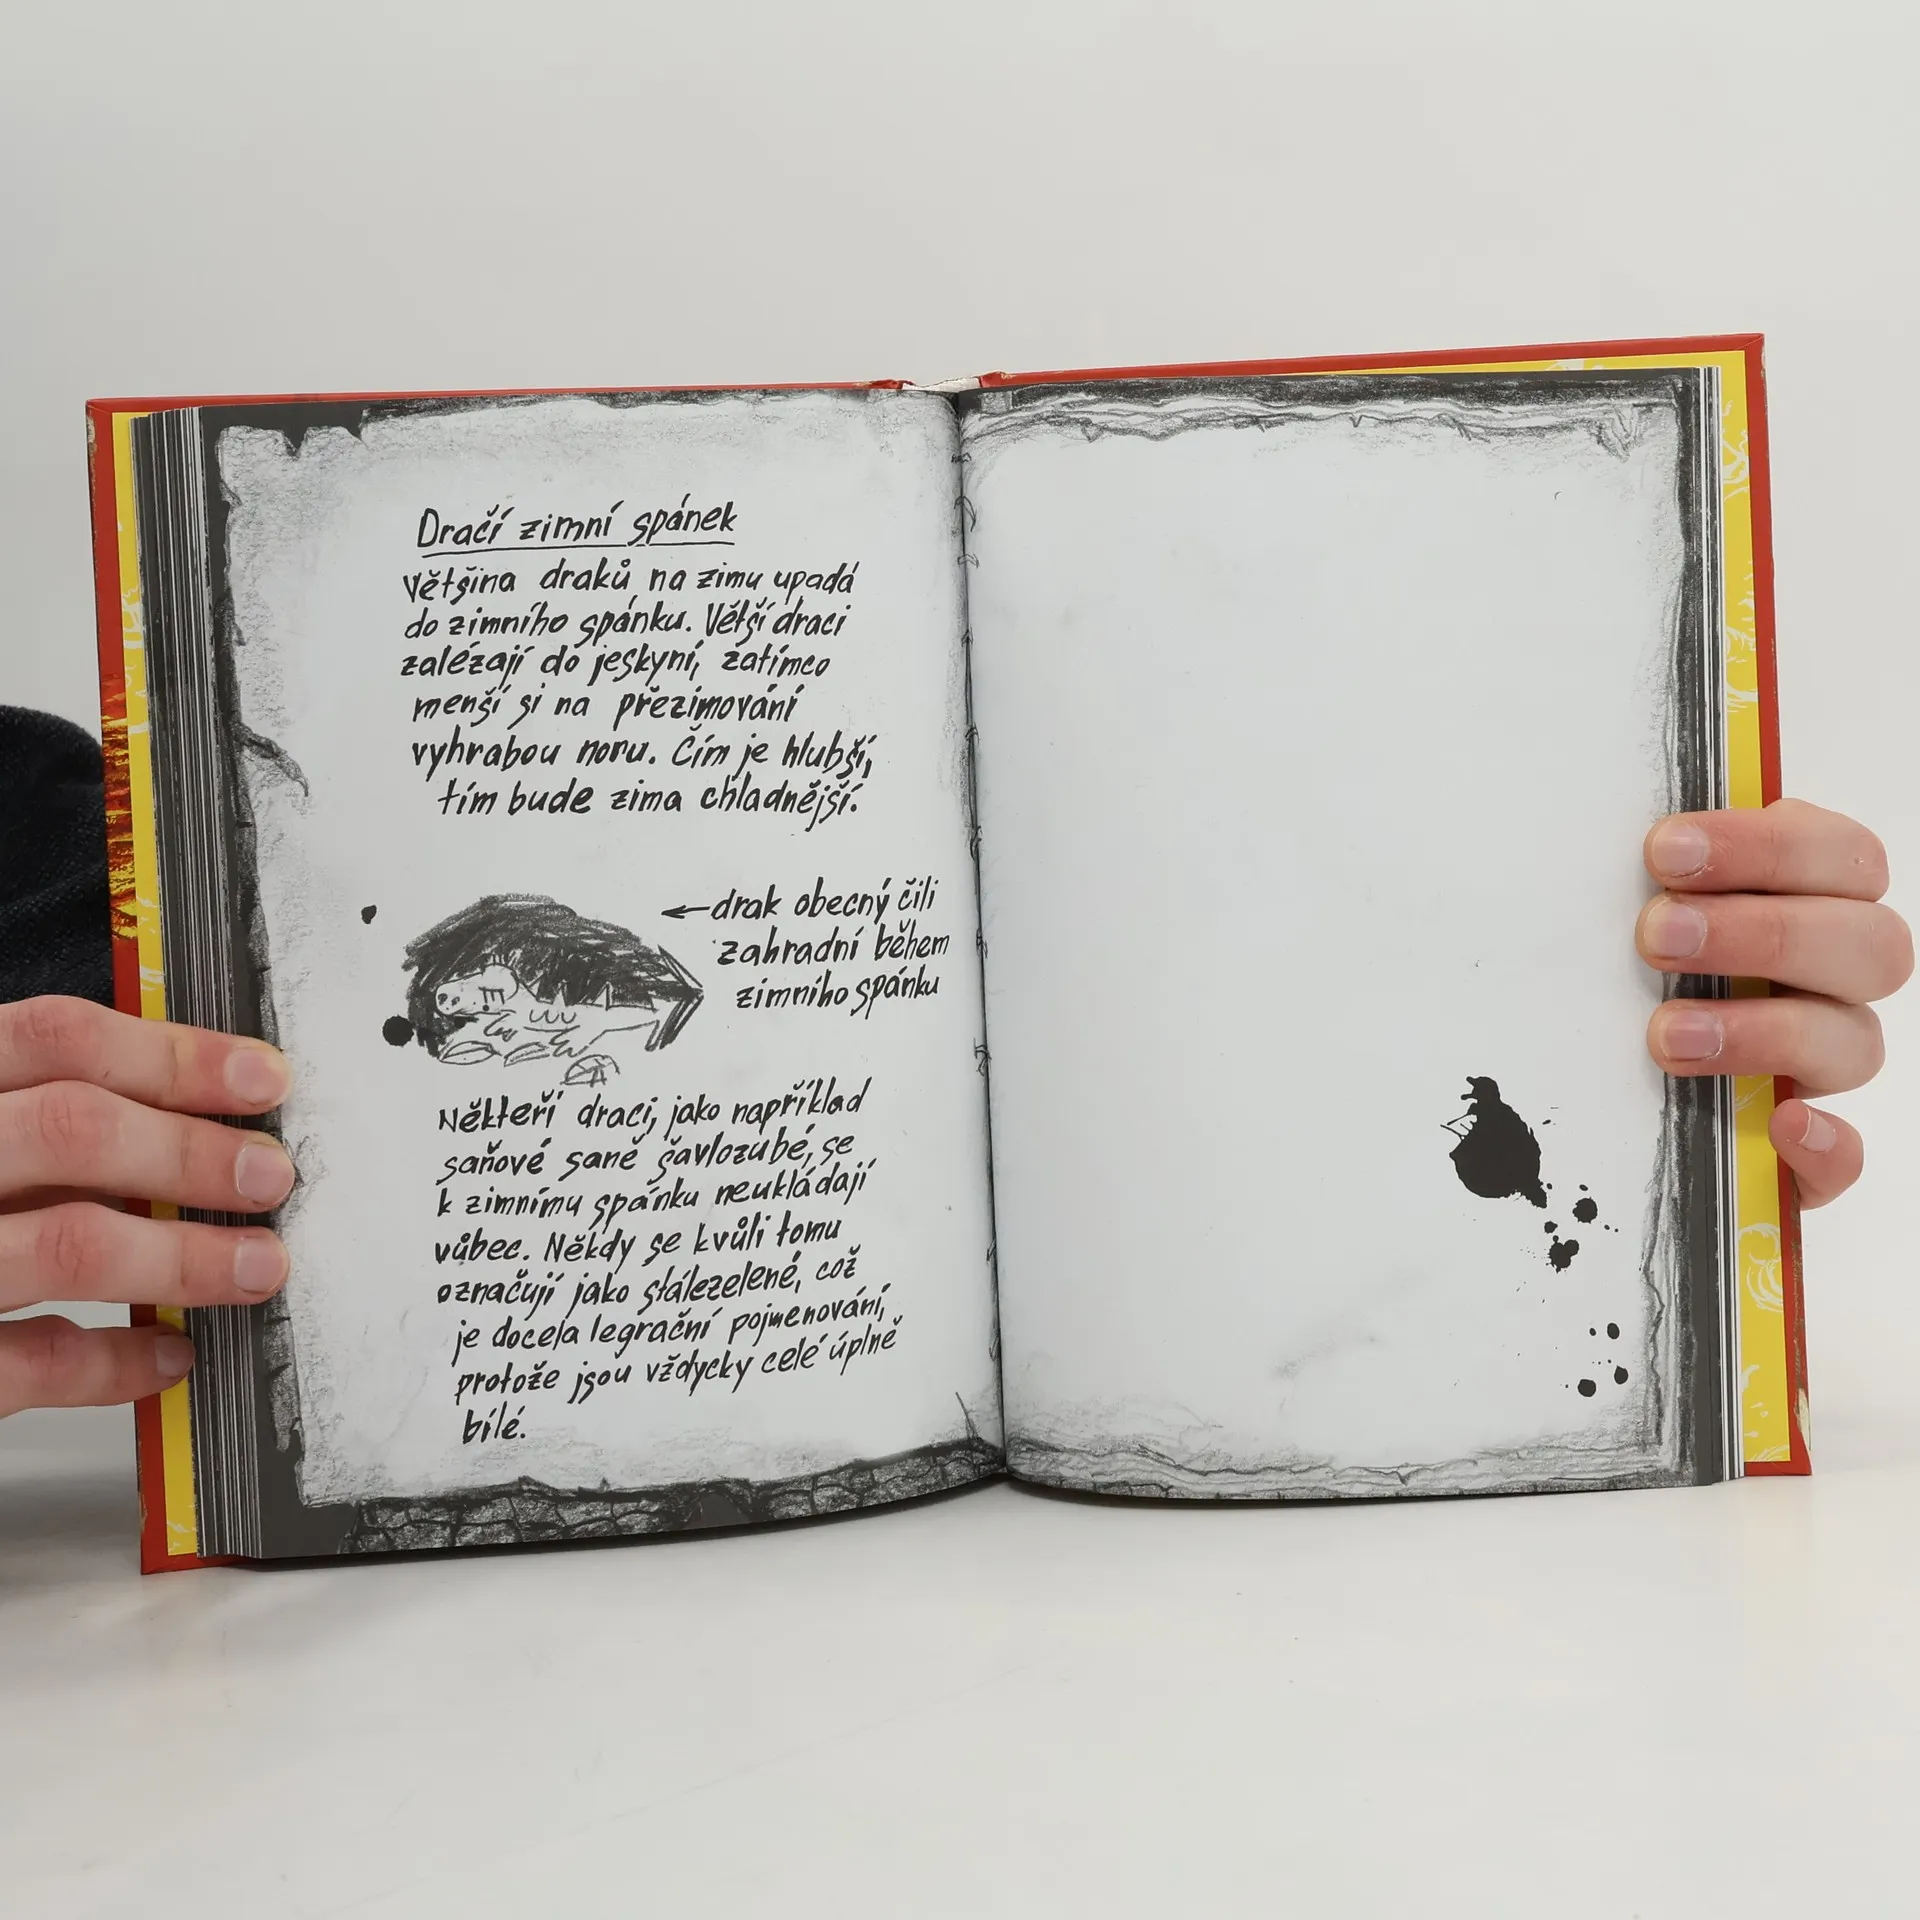 Dračí zimní spánek
Většina draků na zimu upadá
do zimního spánku. Větší draci
zalézají do jeskyní, zatímco
menší si na přezimování
vyhrabou noru. Čím je hlubší,
tím bude zima chladnější.
←drak obecný čili
zahradní během
zimního spánku
Někteří draci, jako například
saňové saně šavlozubé, se
k zimnímu spánku neukládají
vůbec. Někdy se kvůli tomu
označují jako stálezelené, což
je docela legrační pojmenování,
protože jsou vždycky celé úplně
bílé.